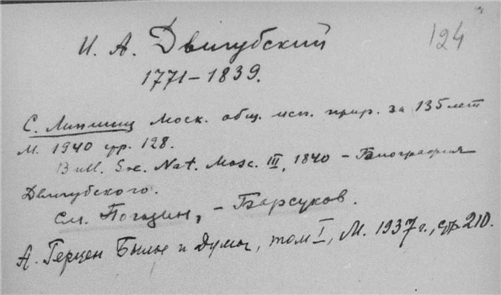 И. А. Двигубский
124
1771–1839.
С. Липшиц Моск. общ. исп. прир. за 135 лет
М. 1940 стр. 128.
Bull. Soc. Nat. Mosc. III, 1840 – Биография
Двигубского.
См. Погодин, – Барсуков.
А. Герцен Былое и Думы, том I, М. 1937 г., стр. 210.